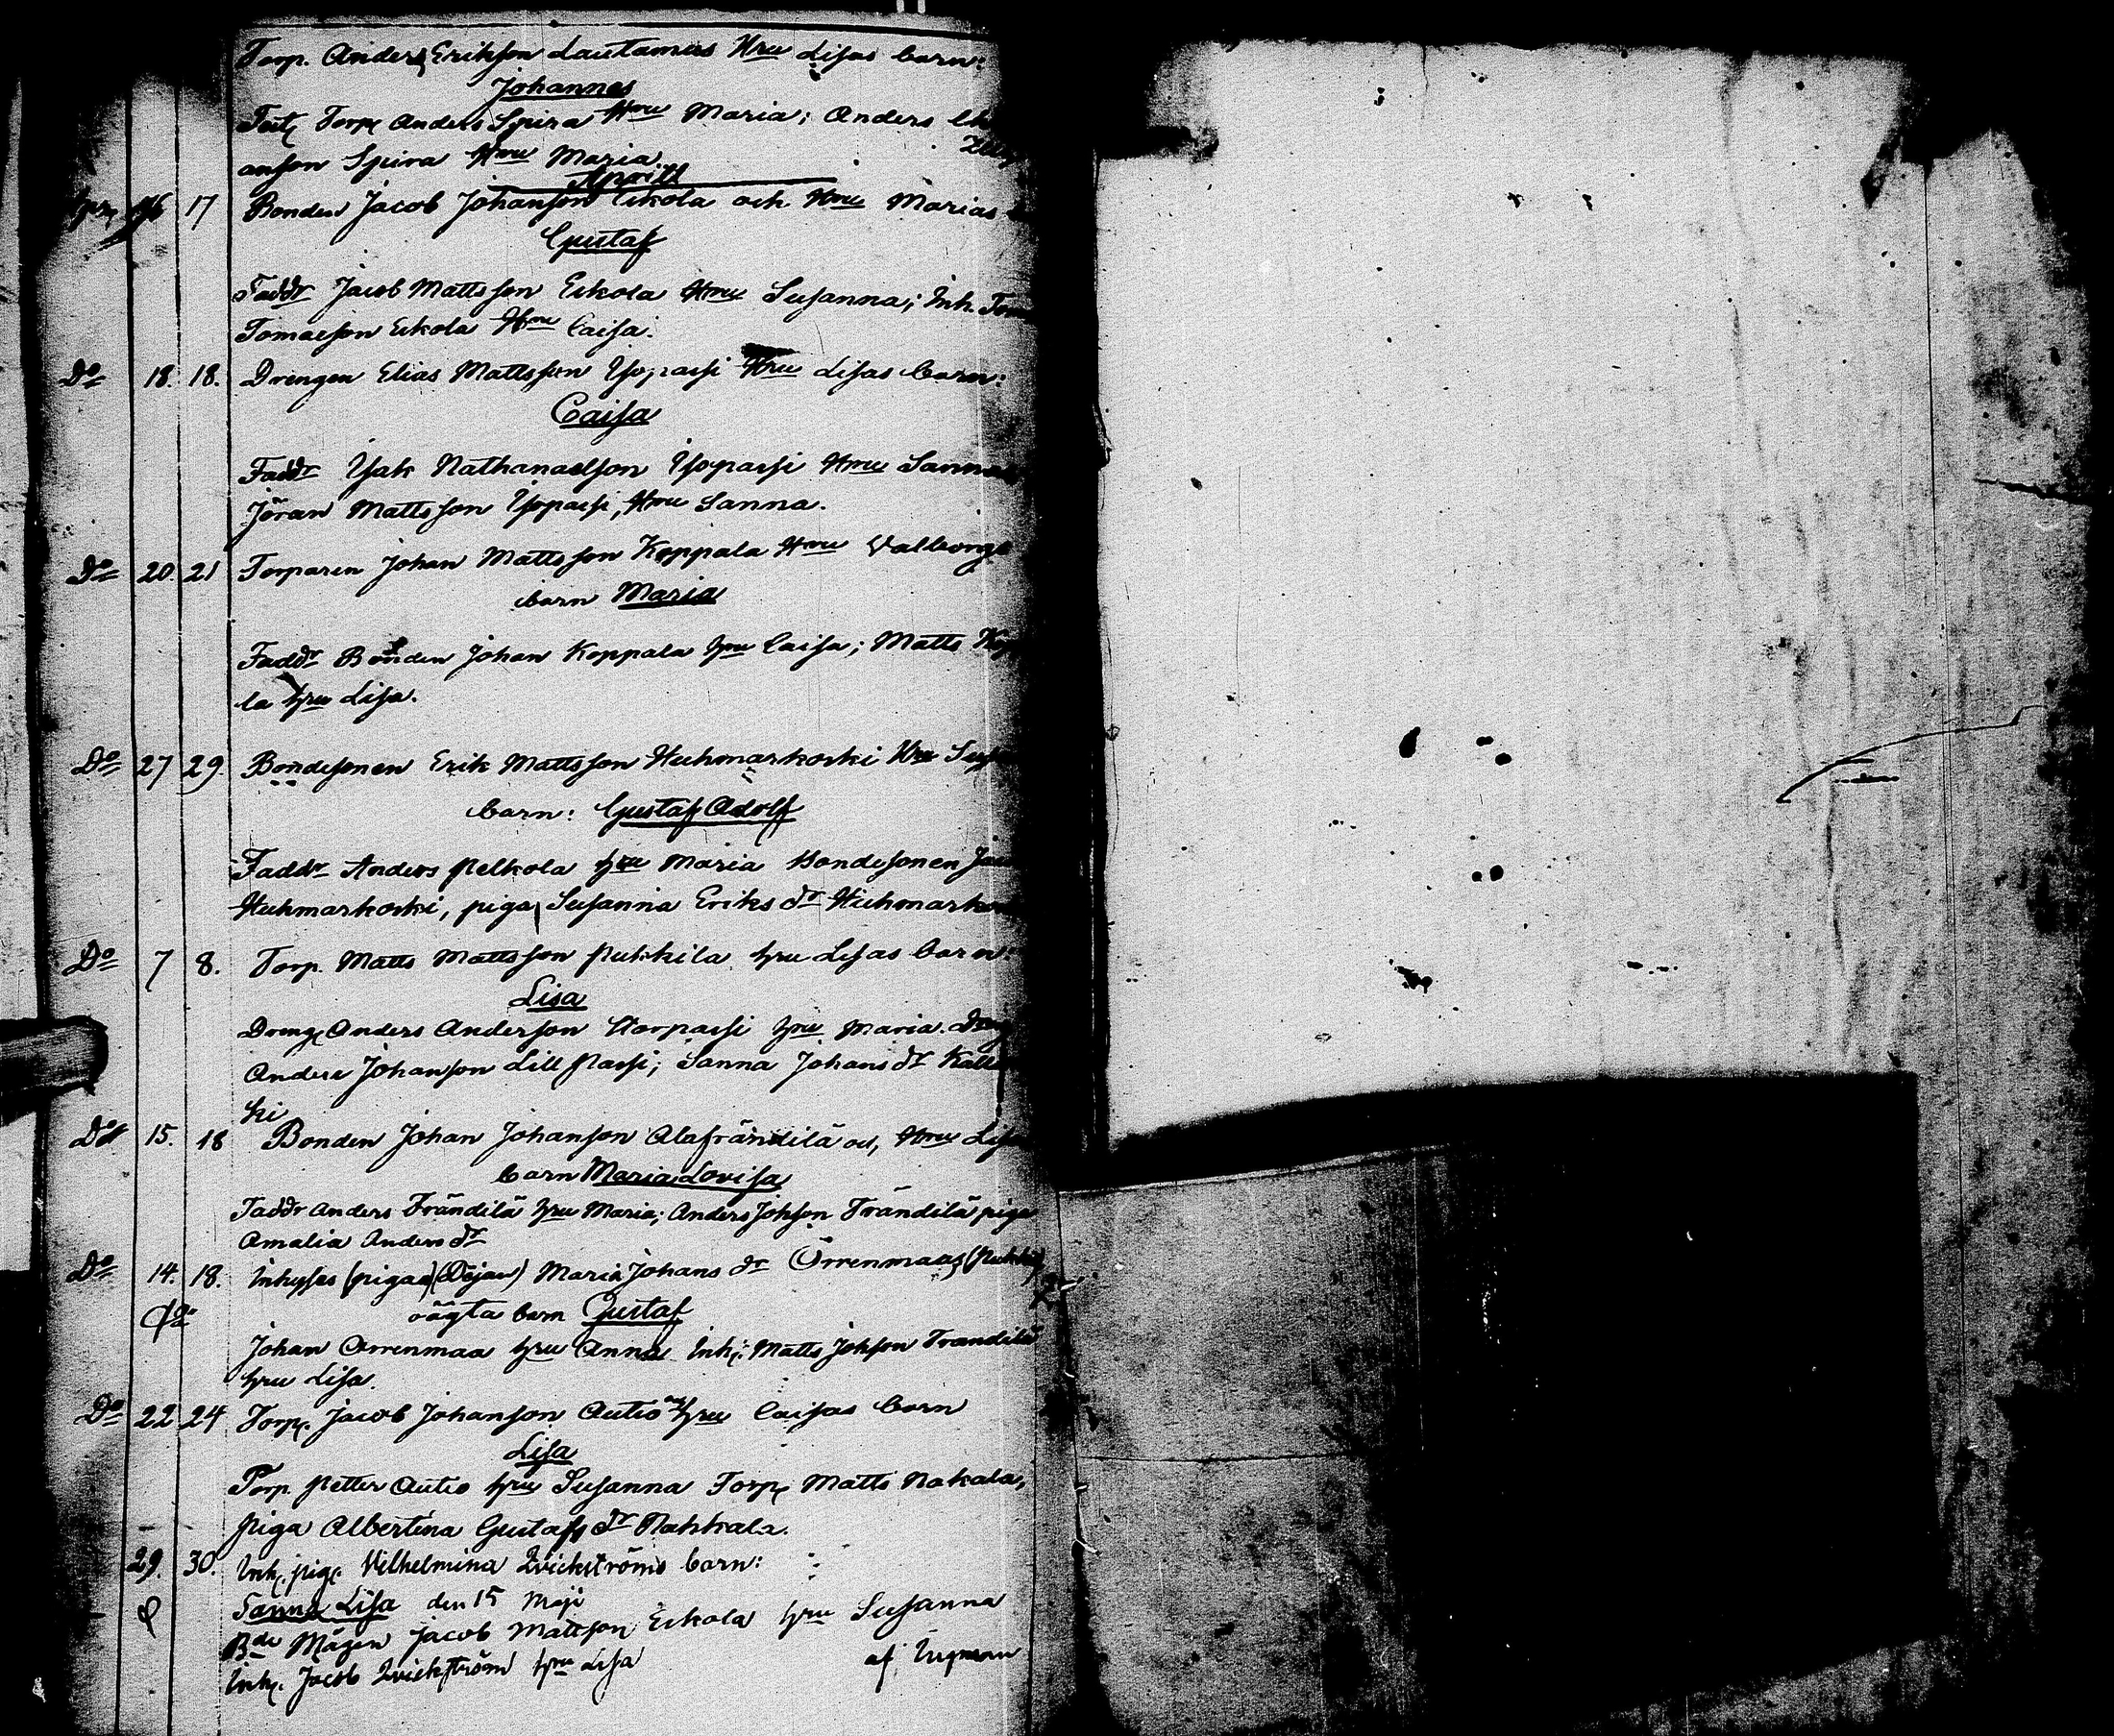 Torp. Anders Erikson Lautamus Hru Lisas barn:
Johannes
Test. Torp. Anders Spira Hru Maria; Anders
anson Spira Hru Maria.
April
16 17 Bonden Jacob Johanson Eskola och Hru Marias
Gustaf
Faddr Jacob Mattsson Eskola Hru Susanna; Inh.
Tomasson Eskola Hru Caisa.
Do 18. 18. Drengen Elias Mattsson Isopassi Hru Lisas barn:
Caisa
Faddr Isak Nathanaelson Isopassi Hru Sanna
Jöran Mattsson Isopassi, Hru Sanna.
Do 20. 21 Torparen Johan Mattsson Koppala Hru Valborgs
barn Maria
Faddr Bonden Johan Koppala hru Caisa; Matts
la hru Lisa.
Do 27 29. Bondesonen Erik Mattsson Huhmarkoski Hru
barn: Gustaf Adolf
Faddr Anders Pelkola hru Maria Bondesonen
Huhmarkoski, piga Susanna Eriks dr
Do 7 8. Torp. Matts Mattsson Pukkila hru Lisas barn:
Lisa
Dreng Anders Anderson Storpassi hru Maria.
Anders Johanson Lill Passi; Sanna Johans dr
ki
Do 15. 18 Bonden Johan Johanson Alafrändilä och Hru
barn Maria Lovisa
Faddr Anders Frändilä hru Maria; Anders Johson Frändilä piga
Amalia Anders dr
Do 14. 18. Inhyses (pigan) (Dejan) Maria Johans dr Orrenmaas
oägta barn Gustaf
Johan Orrenmaa hru Anna Inh: Matts Johson Frandilä
hru Lisa.
Do 22 24 Torp. Jacob Johanson Autio och hru Caisas barn
Lisa
Torp. Petter Autio hru Susanna Torp. Matts Nakala,
Piga Albertina Gustafs dr Nakkala.
29. 30. Inh. pig. Vilhelmina Qvickströms barn:
Sanna Lisa den 15 Maji
Bde Mågen Jacob Mattson Eskola hru Susanna
Inh. Jacob Qvickström hru Lisa af